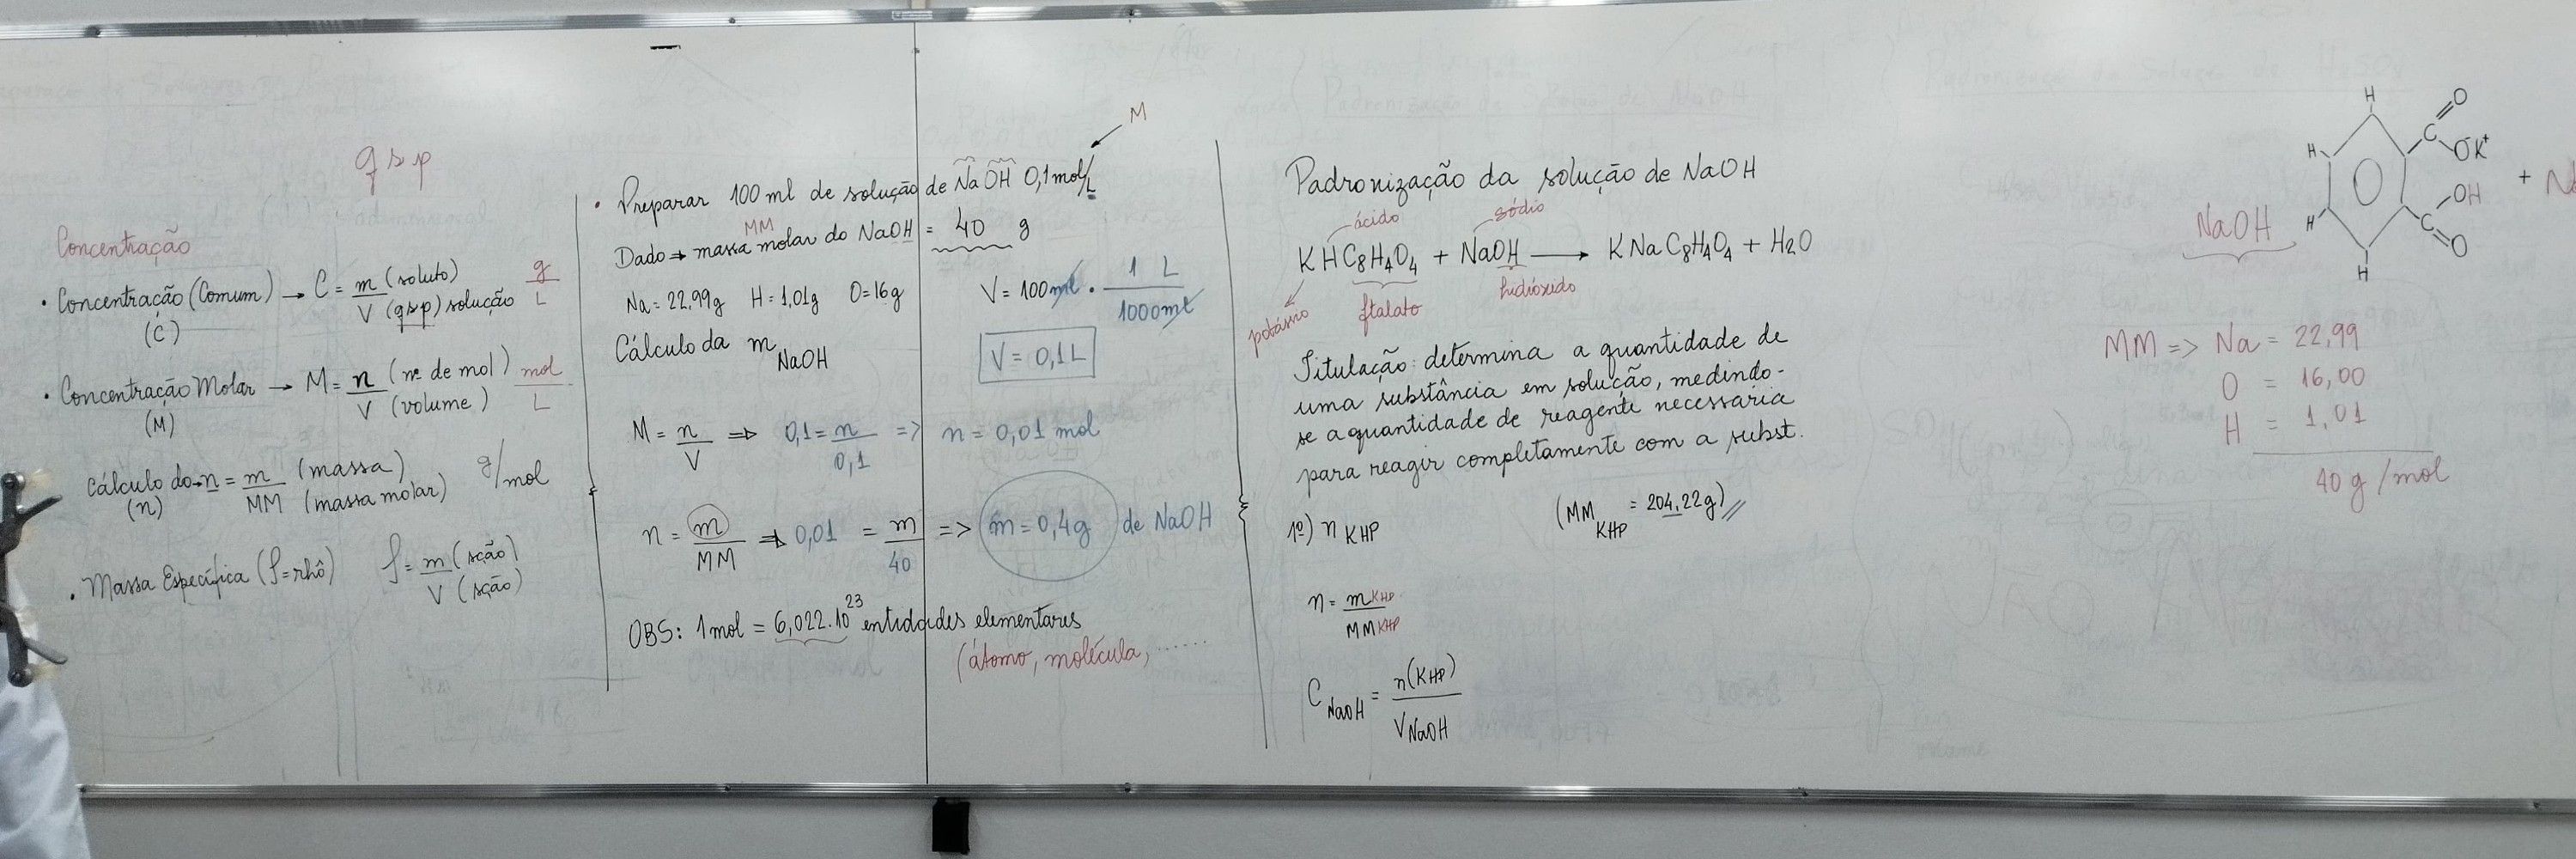 qsp
Concentração
• Concentração (Comum) → C = m (soluto) g
V (qsp) solução L
(C)
• Concentração Molar → M = n (nº de mol) mol
V (volume) L
(M)
Cálculo do → n = m (massa) g/mol
(n) MM (massa molar)
• Massa Específica (ρ = rhô) ρ = m (sção)
V (sção)
M
• Preparar 100 ml de solução de NaOH 0,1 mol/L
MM
Dado → massa molar do NaOH = 40 g
Na = 22,99g H = 1,01g O = 16g
V = 100 ml . 1 L
1000 ml
V = 0,1 L
Cálculo da m NaOH
M = n ⇒ 0,1 = n => n = 0,01 mol
V 0,1
n = m ⇒ 0,01 = m => m = 0,4g de NaOH
MM 40
OBS: 1 mol = 6,022.10²³ entidades elementares
(átomo, molécula, ......
Padronização da solução de NaOH
ácido sódio
KHC₈H₄O₄ + NaOH → KNaC₈H₄O₄ + H₂O
potássio ftalato hidróxido
Titulação: determina a quantidade de
uma substância em solução, medindo-
se a quantidade de reagente necessária
para reagir completamente com a subst.
1º) n KHP (MM KHP = 204,22g)
n = m KHP
MM KHP
C NaOH = n(KHP)
V NaOH
H
H
H
H
C
O
O⁻K⁺
OH
C
O
+
NaOH
MM => Na = 22,99
O = 16,00
H = 1,01
40 g/mol